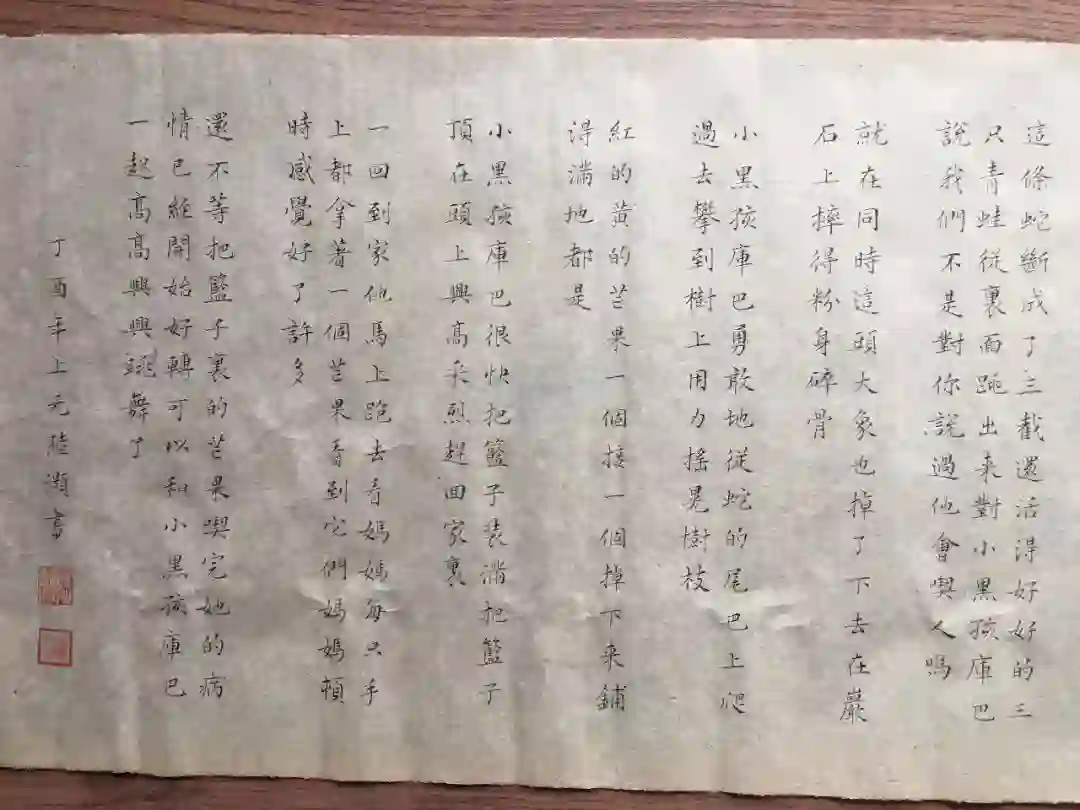 這條蛇斷成了三截還活得好好的三
只青蛙從裏面跳出來對小黑孩庫巴
說我們不是對你說過他會喫人嗎
就在同時這頭大象也掉了下去在巖
石上摔得粉身碎骨
小黑孩庫巴勇敢地從蛇的尾巴上爬
過去攀到樹上用力搖晃樹枝
紅的黃的芒果一個接一個掉下來鋪
得滿地都是
小黑孩庫巴很快把籃子裝滿把籃子
頂在頭上興高采烈趕回家裏
一回到家他馬上跑去看媽媽每只手
上都拿著一個芒果看到它們媽媽頓
時感覺好了許多
還不等把籃子裏的芒果喫完她的病
情已經開始好轉可以和小黑孩庫巴
一起高高興興跳舞了
丁酉年上元陸灝書